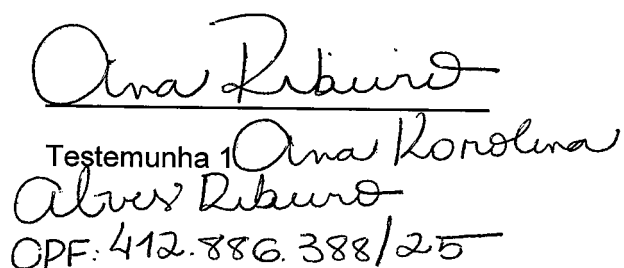 Ana Ribeiro
Testemunha 1 Ana Karolina
Alves Ribeiro
CPF: 412.886.388/25